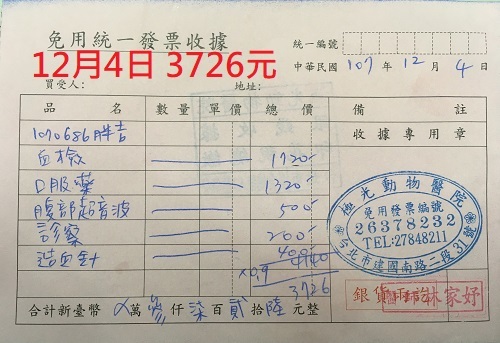 免用統一發票收據
12月4日 3726元
統一編號
中華民國 107 年 12 月 4 日
買受人: 地址:
品名 數量 單價 總價 備註
收據專用章
1070686胖吉
血檢 1720
口服藥 1320
腹部超音波 500
診察 200
造血針 400
4140
x0.9
3726
極光動物醫院
免用發票編號
26378232
TEL:27848211
台北市建國南路二段31號
銀貨兩訖
林家妤
合計新臺幣 萬 參 仟 柒 百 貳 拾 陸 元整